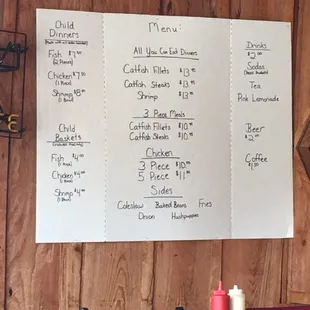 Child
Dinners
Fish $7.00
(2 Piece)
Chicken $7.50
(1 Piece)
Shrimp $8.00
(1 Bowl)
Child
Baskets
Fish $4.00
(1 Piece)
Chicken $4.00
(1 Piece)
Shrimp $4.00
(1 Bowl)
Menu
All You Can Eat Dinners
Catfish Fillets $13.95
Catfish Steaks $13.95
Shrimp $13.95
3 Piece Meals
Catfish Fillets $10.95
Catfish Steaks $10.95
Chicken
3 Piece $10.00
5 Piece $11.00
Sides
Coleslaw Baked Beans Fries
Onion Hushpuppies
Drinks
$2.00
Sodas
Tea
Pink Lemonade
Beer
$2.00
Coffee
$1.50